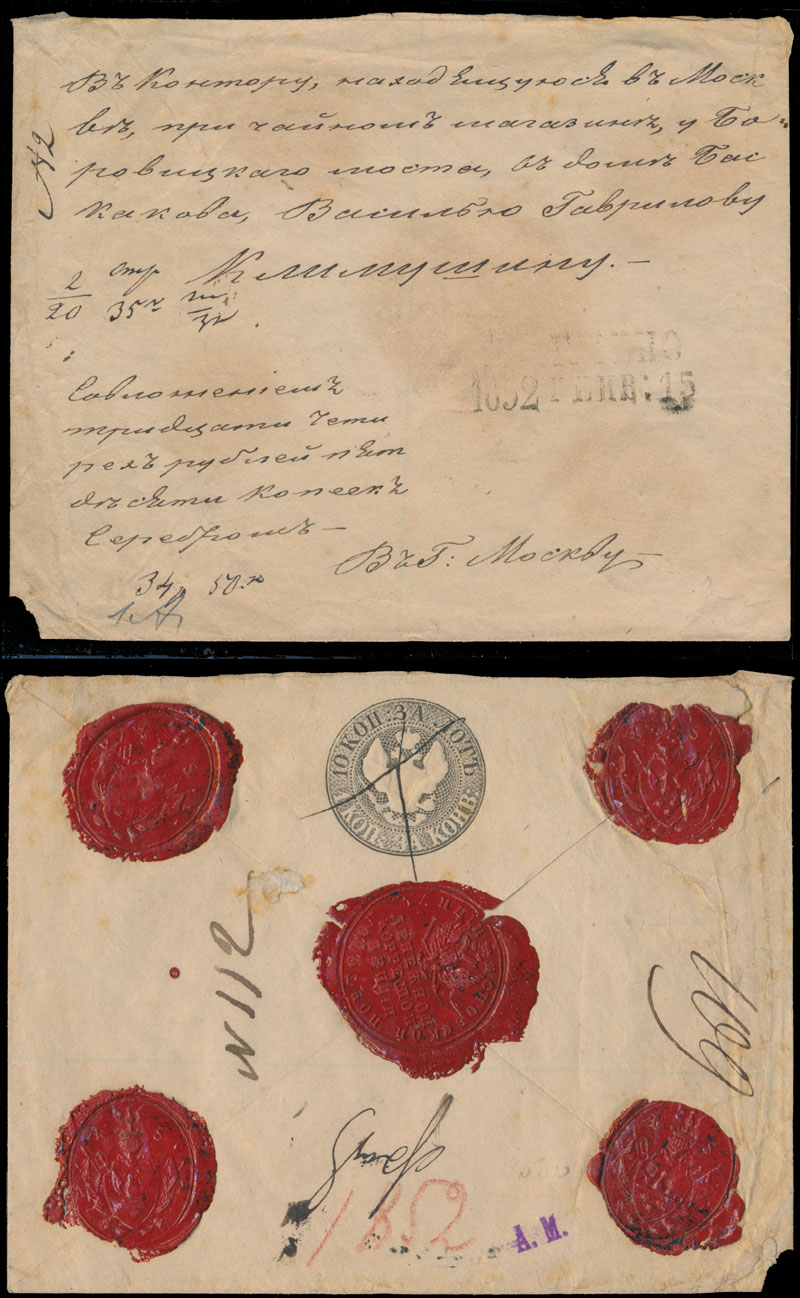 Въ Контору, находящуюся въ Моск
вѣ, при чайномъ магазинѣ, у Бо-
ровицкаго моста, въ домѣ Бас
какова, Василью Гаврилову
Климушину.—
№2
2/20
стр
35
Совложеніемъ
тридцати четы
рехъ рублей пят
десяти копеекъ
Серебромъ—
34, 50 к
Въ Г: Москву
1852 ГЕНВ: 15
10 КОП: ЗА ЛОТЪ
КОП: ЗА КОНВ:
N 112
1852
А. М.